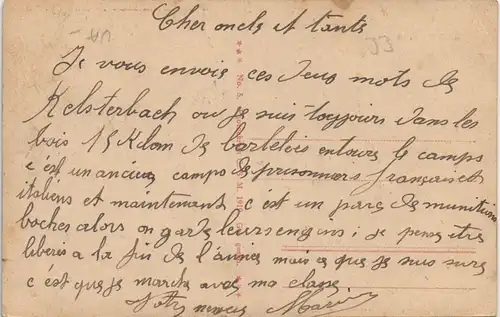 Cher oncle et tante
Je vous envois ces deux mots de
Kelsterbach ou je suis toujours dans les
bois 15 Klom de barbelées entoure le camps
c'est un ancien camps de prisonniers français et
italiens et maintenant c'est un parc de munitions
boches alors on garde leurs engins; je pense etre
liberis a la fin de l'année mais ce que je suis surs
c'est que je marche avec ma classe.
Votre neveu